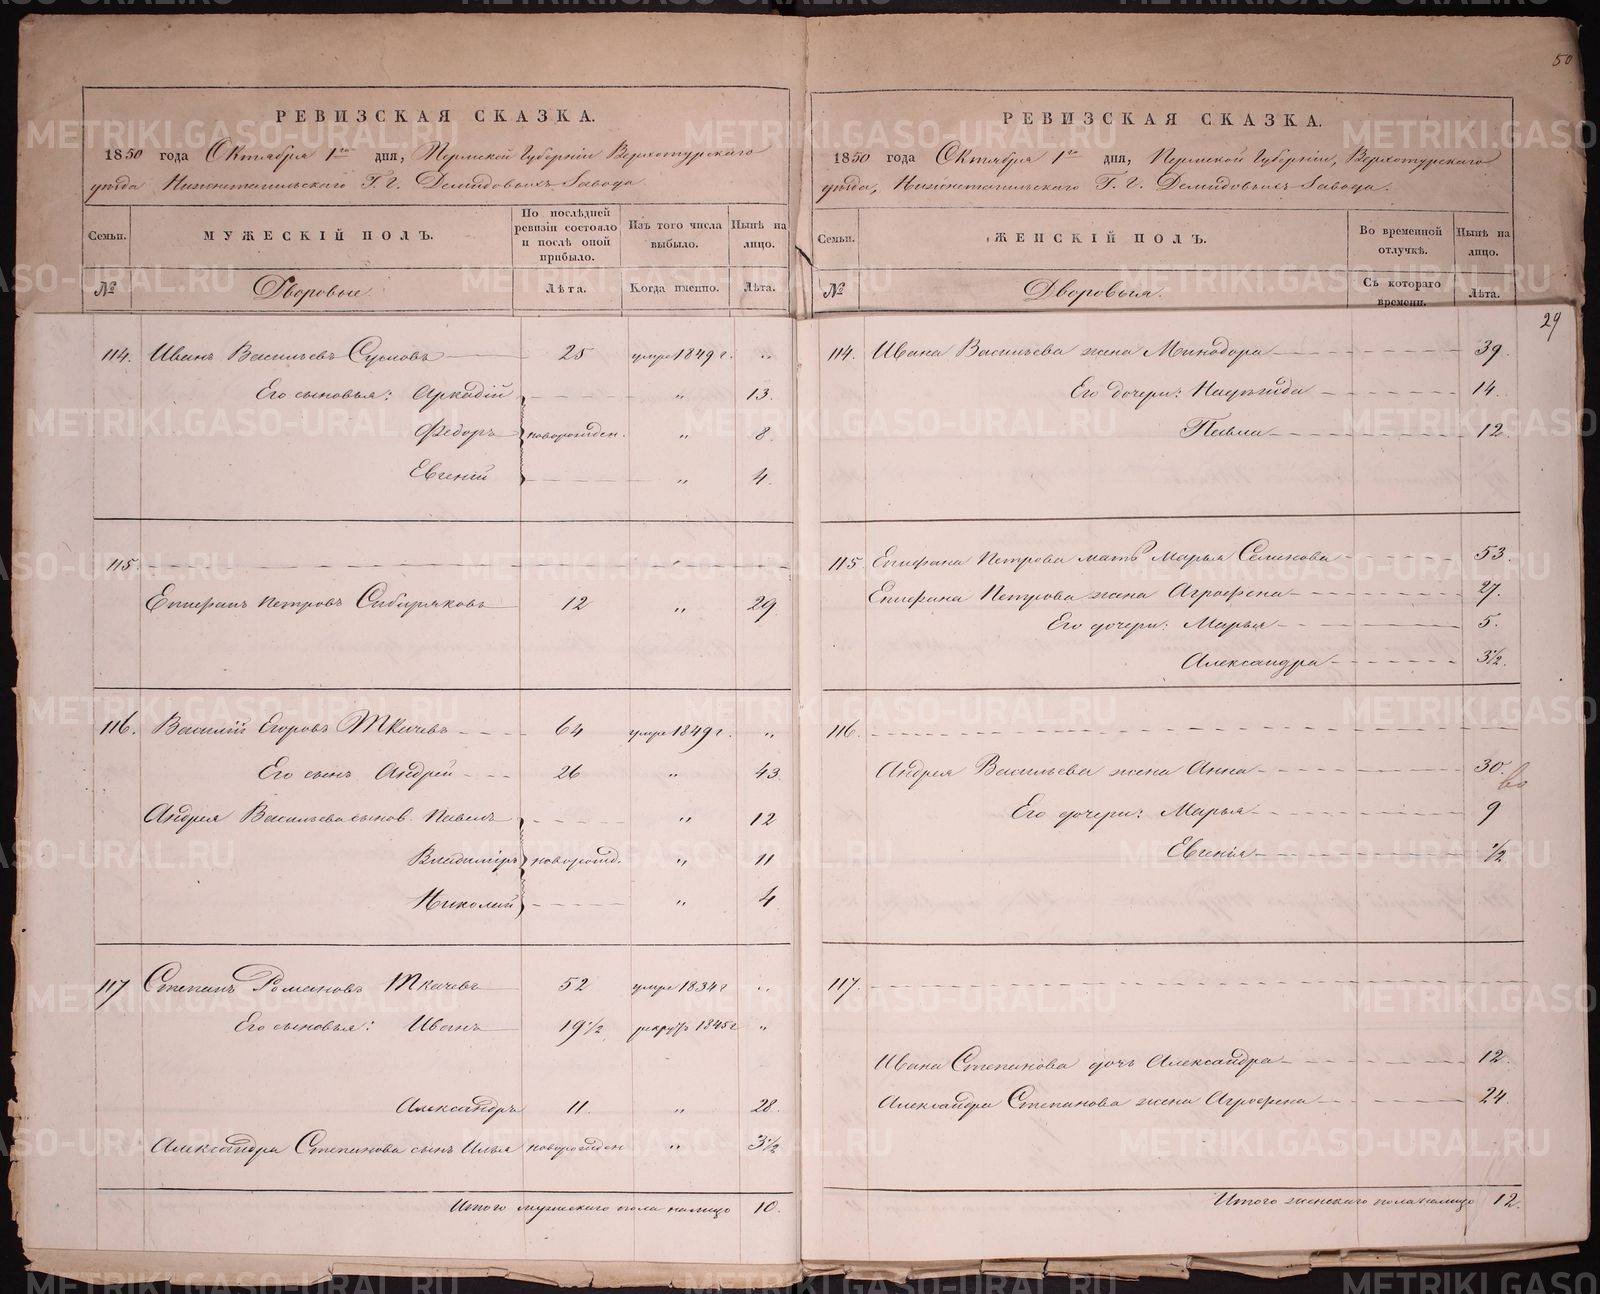 50
РЕВИЗСКАЯ СКАЗКА.
1850 года Октября 1го дня, Пермской Губерніи Верхотурскаго
уѣзда Нижнетагильскаго Г. г. Демидовыхъ Завода.
Семьи. МУЖЕСКІЙ ПОЛЪ. По послѣдней ревизіи состояло и послѣ оной прибыло. Изъ того числа выбыло. Нынѣ на лицо.
№ Дворовые Лѣта. Когда именно. Лѣта.
114. Иванъ Васильевъ Сусловъ 25 умре 1849 г. "
Его сыновья: Аркадій " 13.
Федоръ новорожден. " 8.
Евгеній " 4.
115. " "
Епифанъ Петровъ Сибиряковъ 12 " 29.
116. Василій Егоровъ Ткачевъ 64 умре 1849 г. "
Его сынъ Андрей 26 " 43.
Андрея Васильева сынов. Павелъ " 12
Владиміръ новорожд. " 11
Николай " 4
117 Степанъ Романовъ Ткачевъ 52 умре 1834 г "
Его сыновья: Иванъ 19 1/2 рекрутъ 1845 г "
Александръ 11. " 28.
Александра Степанова сынъ Илья новорожден " 3 1/2
Итого мужескаго пола налицо 10.
РЕВИЗСКАЯ СКАЗКА.
1850 года Октября 1го дня, Пермской Губерніи, Верхотурскаго
уѣзда, Нижнетагильскаго Г. г. Демидовыхъ Завода.
Семьи. ЖЕНСКІЙ ПОЛЪ. Во временной отлучкѣ. Нынѣ на лицо.
№ Дворовыя. Съ котораго времени. Лѣта.
29
114. Ивана Васильева жена Минодора 39.
Его дочери: Надежда 14.
Павла 12.
115. Епифана Петрова мать Марья Семенова 53.
Епифана Петрова жена Агрофена 27.
Его дочери: Марья 5.
Александра 3 1/2.
116.
Андрея Васильева жена Анна 30.
Его дочери: Марья 9
Евгенія 1/2
117.
Ивана Степанова дочь Александра 12.
Александра Степанова жена Агрофена 24.
Итого женскаго пола налицо 12.
METRIKI.GASO-URAL.RU